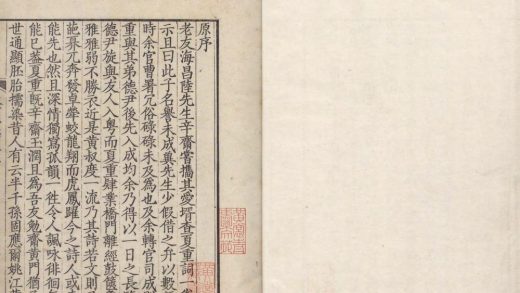 原序
老友海昌陸先生辛齋嘗攜其愛壻查夏重詞一
示且曰此子名譽未成與先生少假借之弁以數
時余官曹署冗俗碌碌未及為也及余轉官司
重與其弟德尹後先入成均余乃得以一日之長
德尹旋與友人入粤而夏重肄業橋門離經鼓篋
雅雅弱不勝衣近是黃叔度一流乃其詩若文則
葩采兀奔發卓犖蛟龍翔而虎鳳躍今之詩人或
能先也然且深情獨寫孤韻一往令人諷咏徘徊
能已蓋夏重旣辛齋玉潤且為吾友勉齋黃門猶
世通顯胚胎擩染昔人有云半千孫固應爾姚江